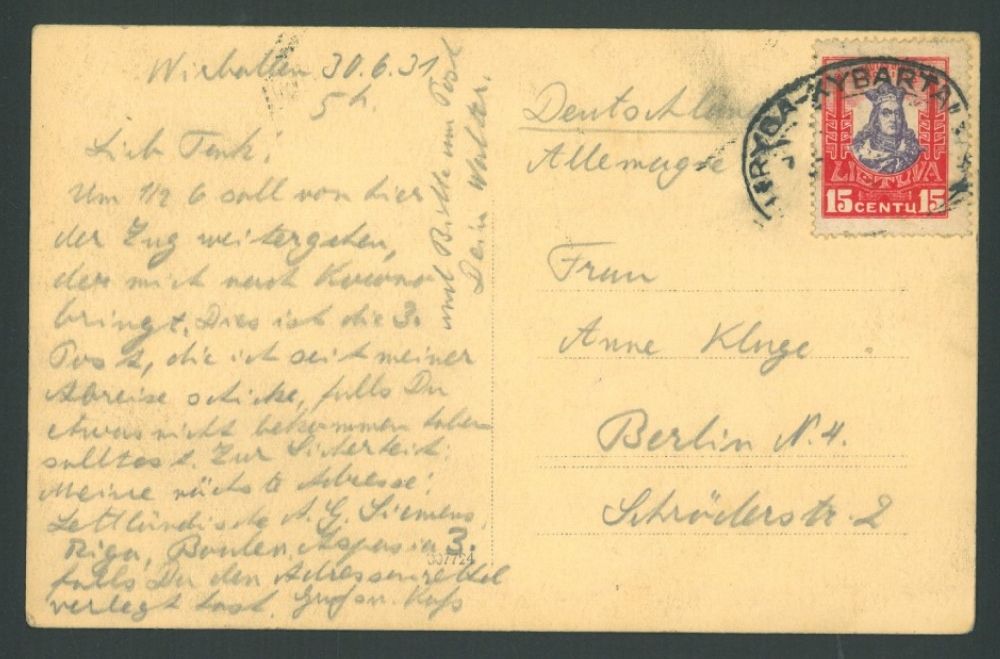 Wirballen 30.6.31
5 h.
Lieb Tank!
Um 1/2 6 soll von hier
der Zug weitergehen,
der mich nach Kowno
bringt. Dies ist die 3.
Post, die ich seit meiner
Abreise schicke, falls Du
etwas nicht bekommen haben
solltest. Zur Sicherheit:
Meine nächste Adresse:
Lettländische A. G. Siemens,
Riga, Boulev. Aspasia 3.
falls Du den Adressenzettel
verlegt hast. Gruß u. Kuß
und Bitte um Post
Dein Walter.
337724
Deutschland
Allemagne
KYBARTAI
LIETUVA
15 CENTŲ 15
Frau
Anne Kluge
Berlin N. 4.
Schröderstr. 2